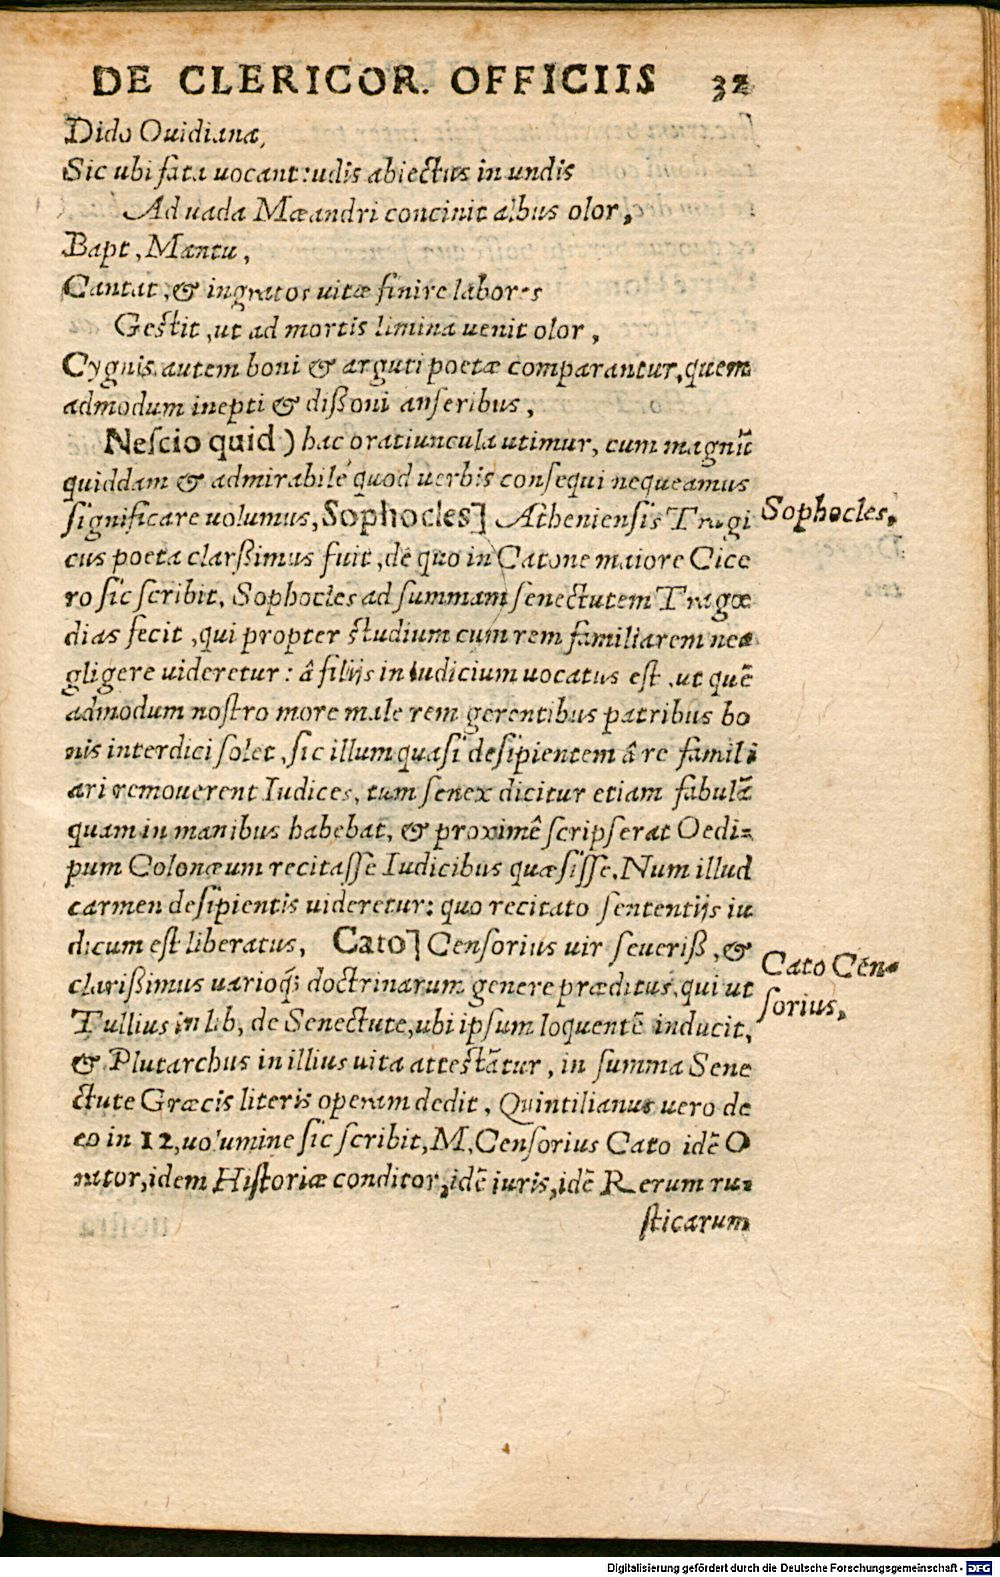 DE CLERICOR. OFFICIIS 32
Dido Ouidiana,
Sic ubi fata uocant: udis abiectus in undis
Ad uada Mæandri concinit albus olor,
Bapt, Mantu,
Cantat, & ingratos uitæ finire labores
Gestit, ut ad mortis limina uenit olor,
Cygnis autem boni & arguti poetæ comparantur, quem
admodum inepti & dißoni anseribus,
Nescio quid) hac oratiuncula utimur, cum magnũ
quiddam & admirabile quod uerbis consequi nequeamus
significare uolumus, Sophocles] Atheniensis Tragi
cus poeta clarßimus fuit, de quo in Catone maiore Cice
ro sic scribit, Sophocles ad summam senectutem Tragœ
dias fecit, qui propter studium cum rem familiarem ne⸗
gligere uideretur: â filijs in iudicium uocatus est, ut quẽ
admodum nostro more male rem gerentibus patribus bo
nis interdici solet, sic illum quasi desipientem â re famili
ari remouerent Iudices, tum senex dicitur etiam fabulã
quam in manibus habebat, & proximê scripserat Oedi⸗
pum Colonæum recitasse Iudicibus quæsisse, Num illud
carmen desipientis uideretur: quo recitato sententijs iu
dicum est liberatus, Cato] Censorius uir seueriß, &
clarißimus uarioq; doctrinarum genere præditus, qui ut
Tullius in lib, de Senectute, ubi ipsum loquentẽ inducit,
& Plutarchus in illius uita attestãtur, in summa Sene
ctute Græcis literis operam dedit, Quintilianus uero de
eo in 12, uolumine sic scribit, M, Censorius Cato idẽ O
rator, idem Historiæ conditor, idẽ iuris, idẽ Rerum ru⸗
sticarum
Sophocles,
Cato Cen⸗
sorius,
Digitalisierung gefördert durch die Deutsche Forschungsgemeinschaft - DFG